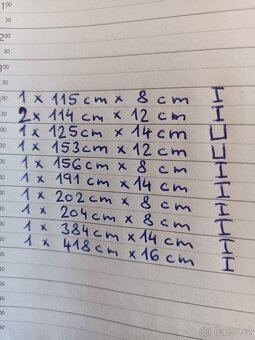 1 × 115 cm × 8 cm I
2 × 114 cm × 12 cm I
1 × 125 cm × 14 cm U
1 × 153 cm × 12 cm U
1 × 156 cm × 8 cm I
1 × 191 cm × 14 cm I
1 × 202 cm × 8 cm I
1 × 204 cm × 8 cm I
1 × 384 cm × 14 cm I
1 × 418 cm × 16 cm I